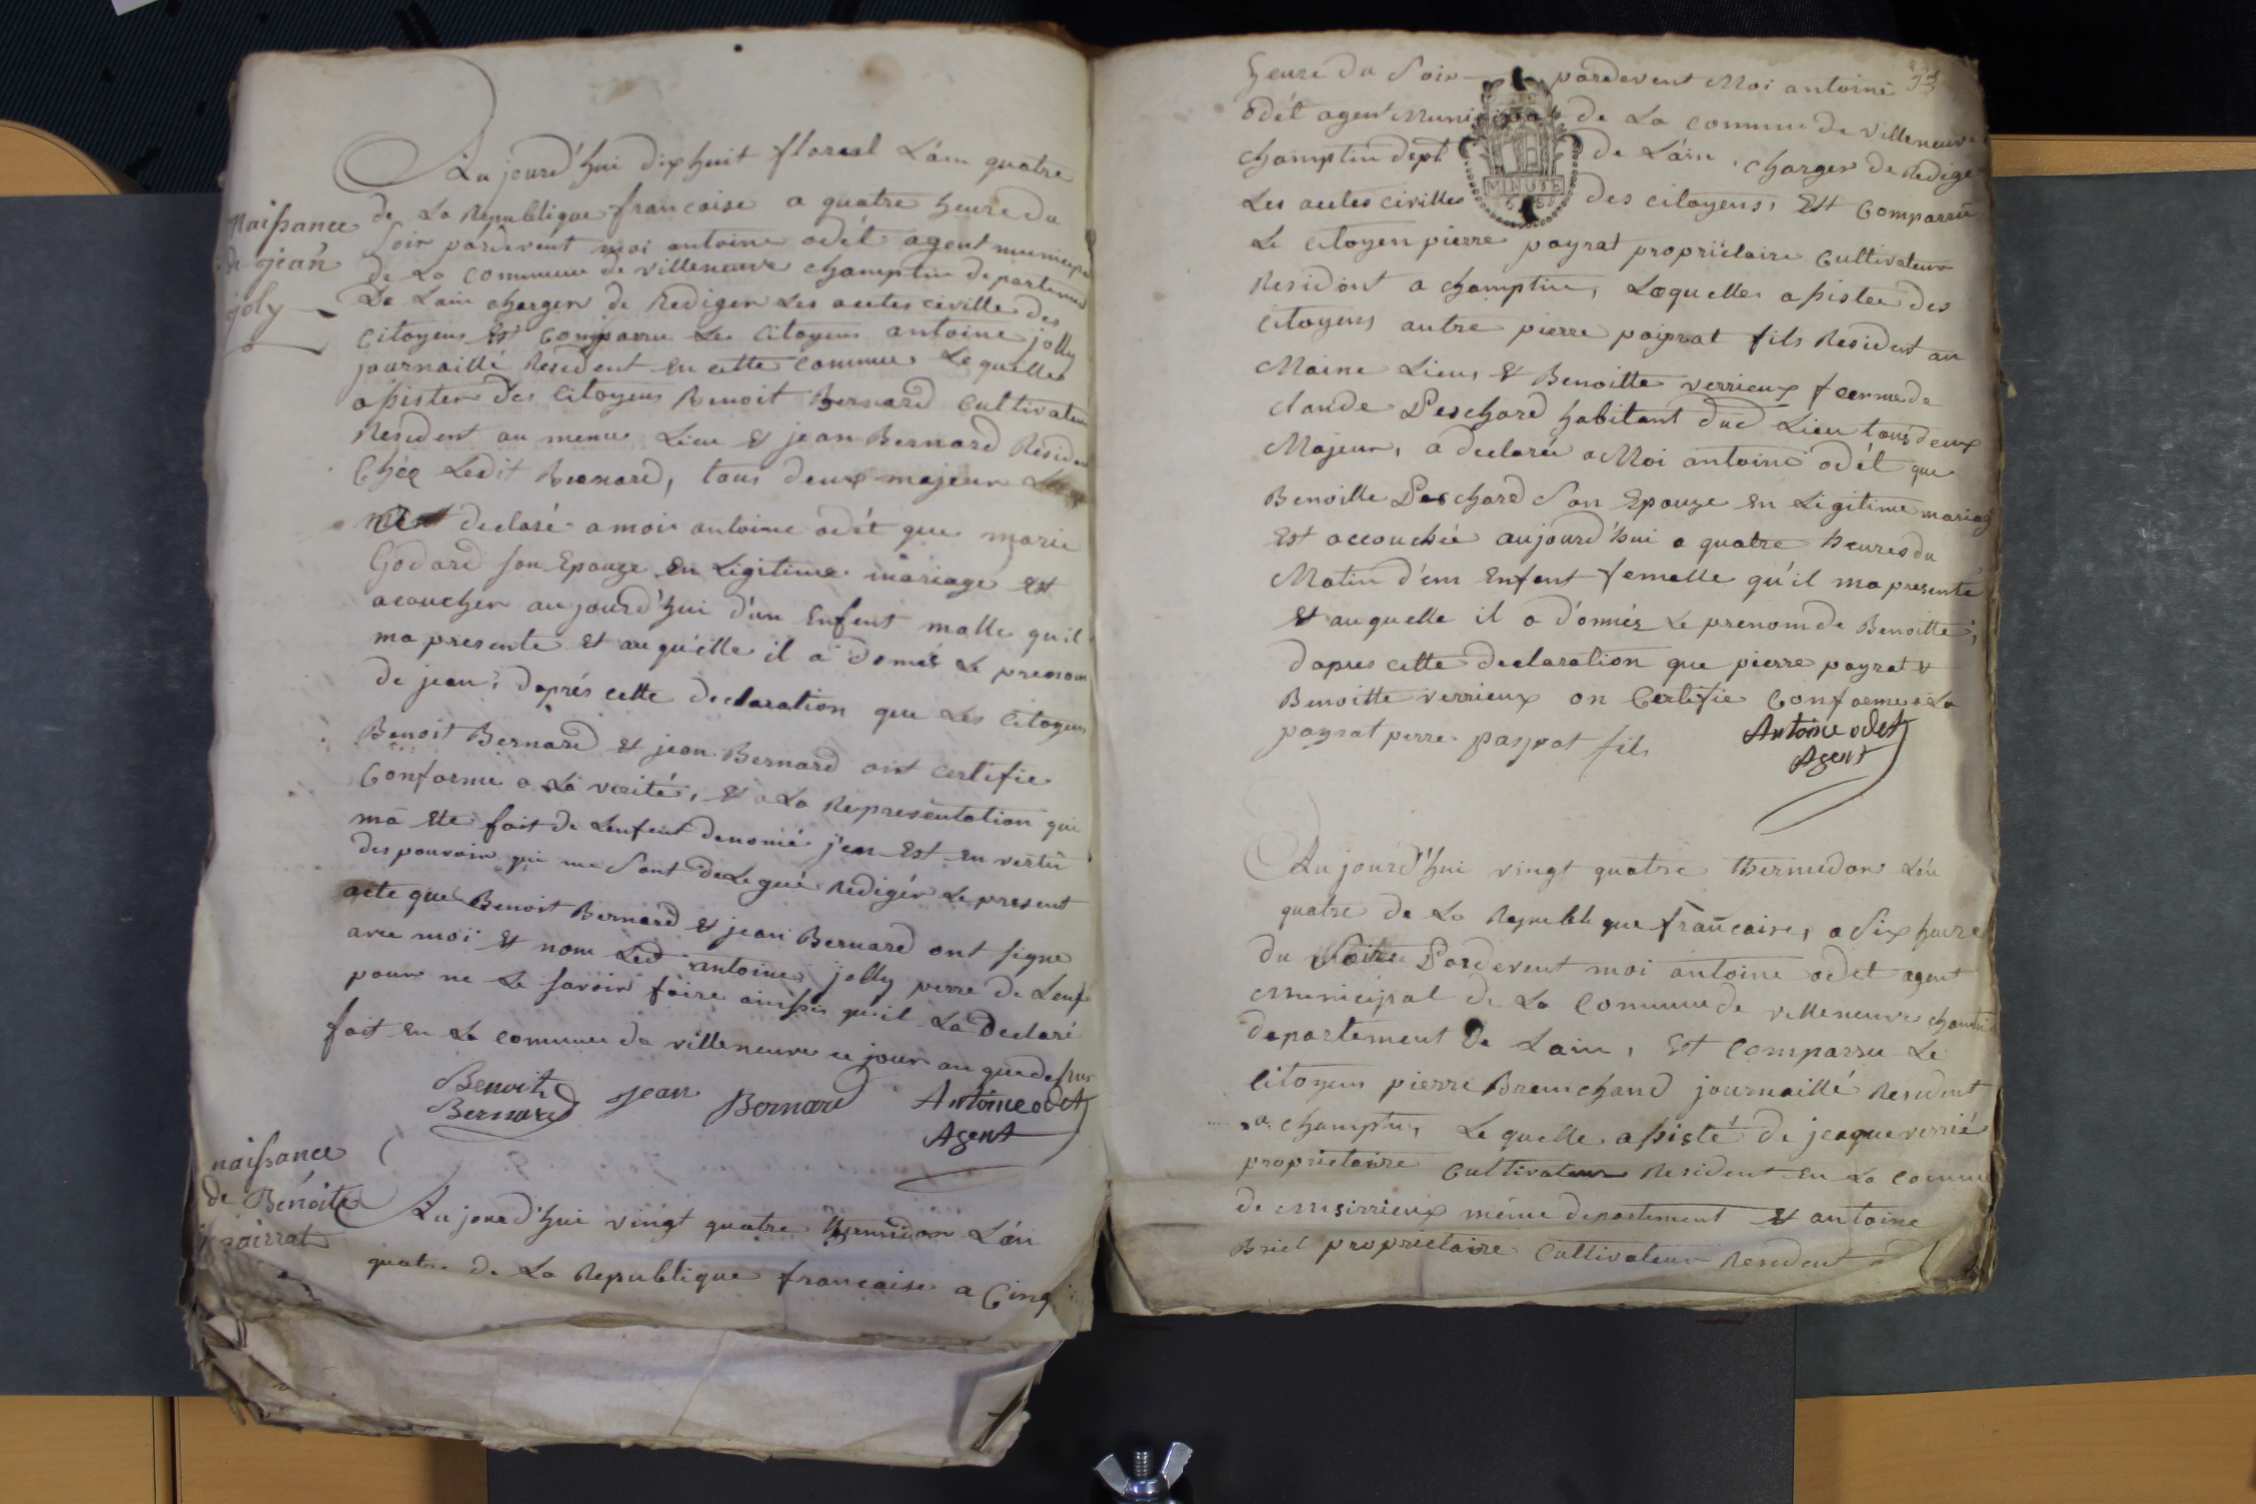 Aujourd'hui dix huit floreal L'an quatre
Naissance
de jean
joly
de La Republique francaise a quatre heure du
Soir pardevent moi antoine odét agent municipa
de La commune de villeneuve champtin departemen
De Lain charger de Rediger Les acctes civille des
Citoyens Est Comparru Le Citoyens antoine jolly
journaillé Resident en cette commune Le quelle
assister des Citoyens Benoit Bernard Cultivateur
Resident au meme Lieu & jean Bernard Residen
Chéz Ledit Bernard, tous deux majeur
declaré a moi antoine odét que marie
Godard son Epouze en Legitime mariage est
acoucher aujourd'hui d'un Enfent malle qu'il
ma presente Et au qu'elle il a donnés Le prenom
de jean, daprés cette declaration que Les Citoyens
Benoit Bernard & jean Bernard ont certifie
Conforme a La verité, & a La Representation qui
ma Ete fait de Lenfent denomé j'en Est en vertu
des pouvoir qui me Sont deLegué Redigér Le present
acte que Benoit Bernard & jean Bernard ont signe
avec moi & nom Led antoine jolly perre de Lenfe
pour ne Le savoir faire ainssi qu'il La Declaré
fait en La commune de villeneuve ce jour an que dessus
Benoit Bernard jean Bernard Antoine odet
Agent
naissance
de Benoite
pairrat
Aujourd'hui vingt quatre thermidor L'an
quatre de La Republique francaise a Cinq
heure du Soir pardevent Moi antoine
odét agent Municipal de La commune de villeneuve
champtin dept de L'ain, charger de Redige
MINUTE
Les acctes civilles des citoyens, Est Comparru
Le Citoyen pierre payrat propriétaire Cultivateur
Resident a champtin, Laquelle assistee des
Citoyens autre pierre payrat fils Resident au
Maine Lieu, & Benoitte verrieux femme de
claude Peschard habitant dud Lieu tous deux
Majeur, a declarée a Moi antoine odét que
Benoitte Peschard Son Epouze en Legitime mariag
Est accouchée aujourd'hui a quatre heures du
Matin d'un Enfent femelle qu'il ma presenté
& au quelle il a donnés Le prenom de Benoitte,
dapres cette declaration que pierre payrat &
Benoitte verrieux on Certifie Conforme a La
payrat perre payrat fils Antoine odet
Agent
Aujourd'hui vingt quatre thermidor L'an
quatre de La Republique francaise, a Six heure
du Soire Pardevent moi antoine odet agent
Municipal de La Commune de villeneuve champtin
departement De Lain, Est Comparru Le
Citoyens pierre Branchand journaillé Resident
a champtin, Le quelle assisté de jeaque verrié
proprietaire Cultivateur Resident en La Commune
de Missirieux même departement & antoine
Briel proprietaire Cultivateur Resident